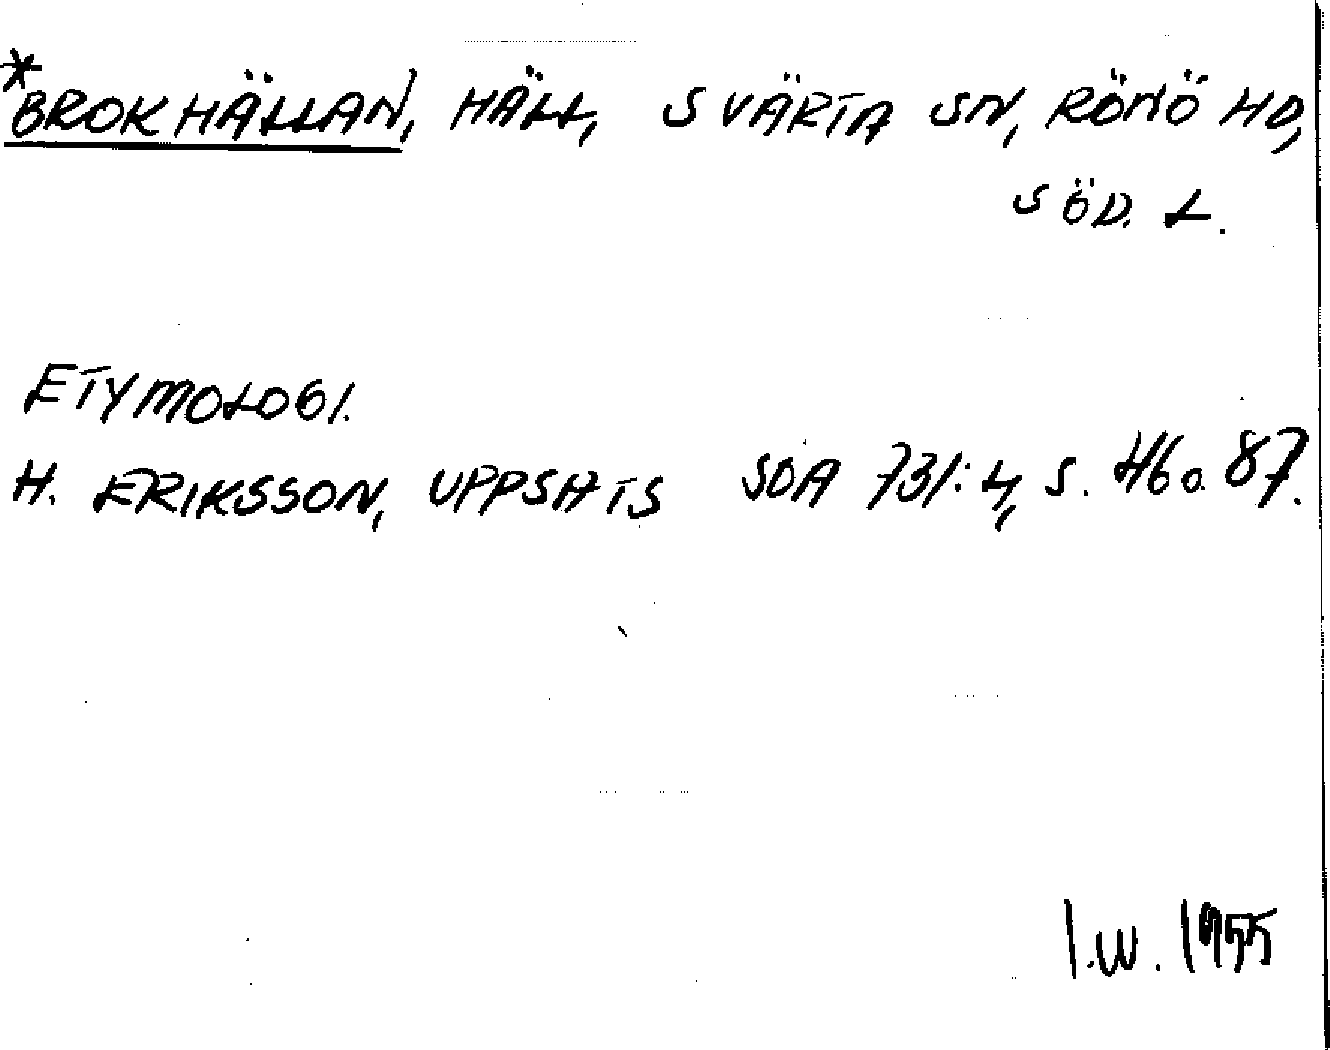 *BROKHÄLLAN, HÄLL, SVÄRTA SN, RÖNÖ HD,
SÖD. L.
ETYMOLOGI.
H. ERIKSSON, UPPSATS SOA 731:4, S. 46 o. 87.
I.W. 1955